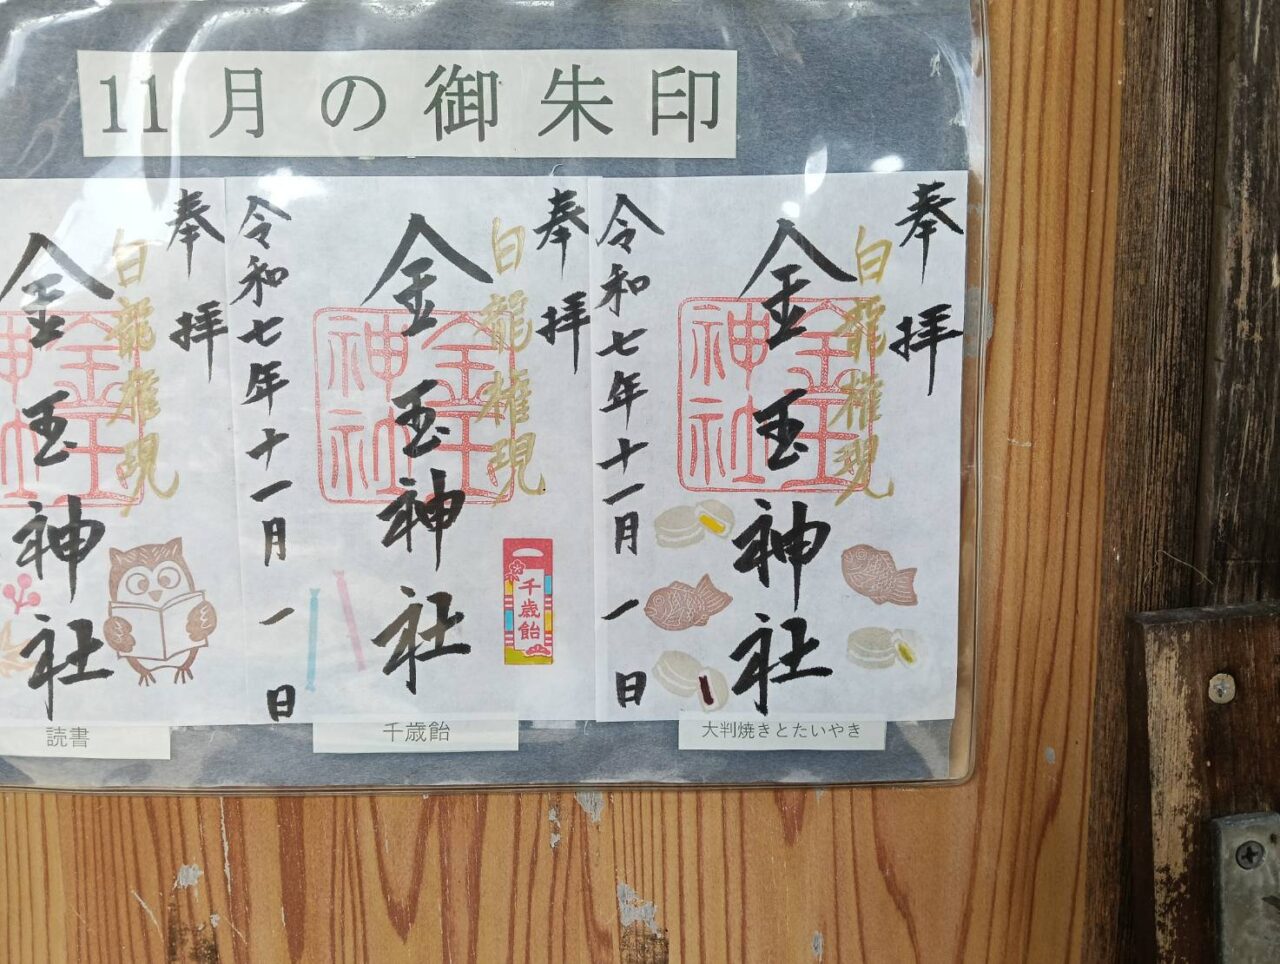 11月の御朱印
奉拝
白龍権現
金玉神社
金玉神社
令和七年十一月一日
大判焼きとたいやき
奉拝
白龍権現
金玉神社
金玉神社
千歳飴
令和七年十一月一日
千歳飴
奉拝
白龍権現
金玉神社
読書